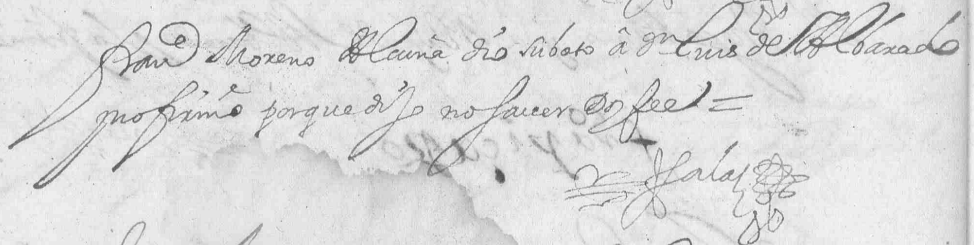 Franco Moreno Alcuña dio su boto â Dn Luis de Albarado
y no firmó porque dijo no saver Doy fee =
Salas